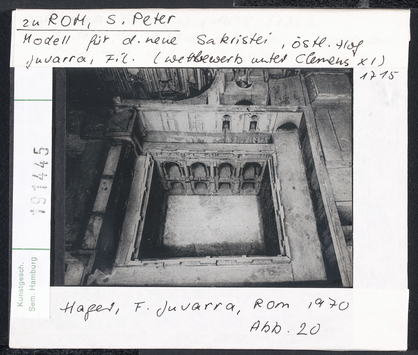 zu ROM, S. Peter
Modell für d. neue Sakristei, östl. Hof
Juvarra, Fil. (Wettbewerb unter Clemens XI)
1715
191445
Kunstgesch.
Sem. Hamburg
Hager, F. Juvarra, Rom 1970
Abb. 20